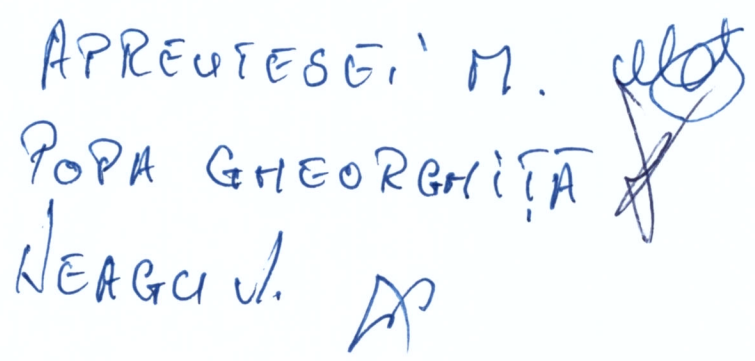 APREUTESEI M.
POPA GHEORGHIȚĂ
NEAGU V.